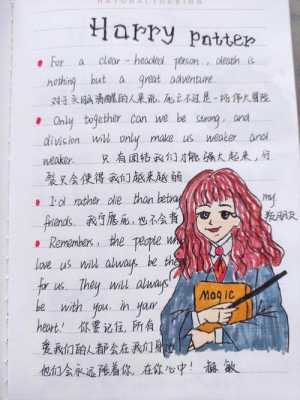 Harry Potter
For a clear-headed person, death is
nothing but a great adventure.
对于头脑清醒的人来说,死亡不过是一场伟大冒险
Only together can we be strong, and
division will only make us weaker and
weaker. 只有团结我们才能强大起来,分
裂只会使得我们越来越弱
I'd rather die than betray my
friends. 我宁愿死,也不会背 朋友
Remember, the people who
love us will always be
for us. They will always
be with you, in your
heart! 你要记住,所有
爱我们的人都会在我们身
他们会永远陪着你,在你心中!
Magic